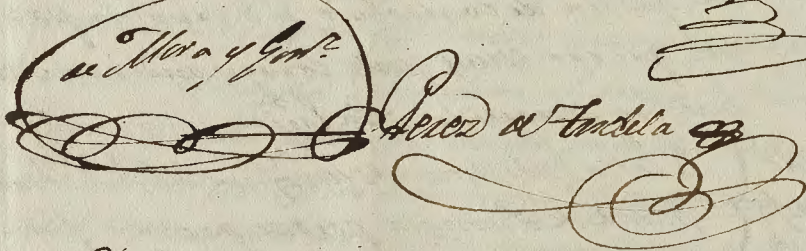 de Mora y Gonz.
Perez de Tudela